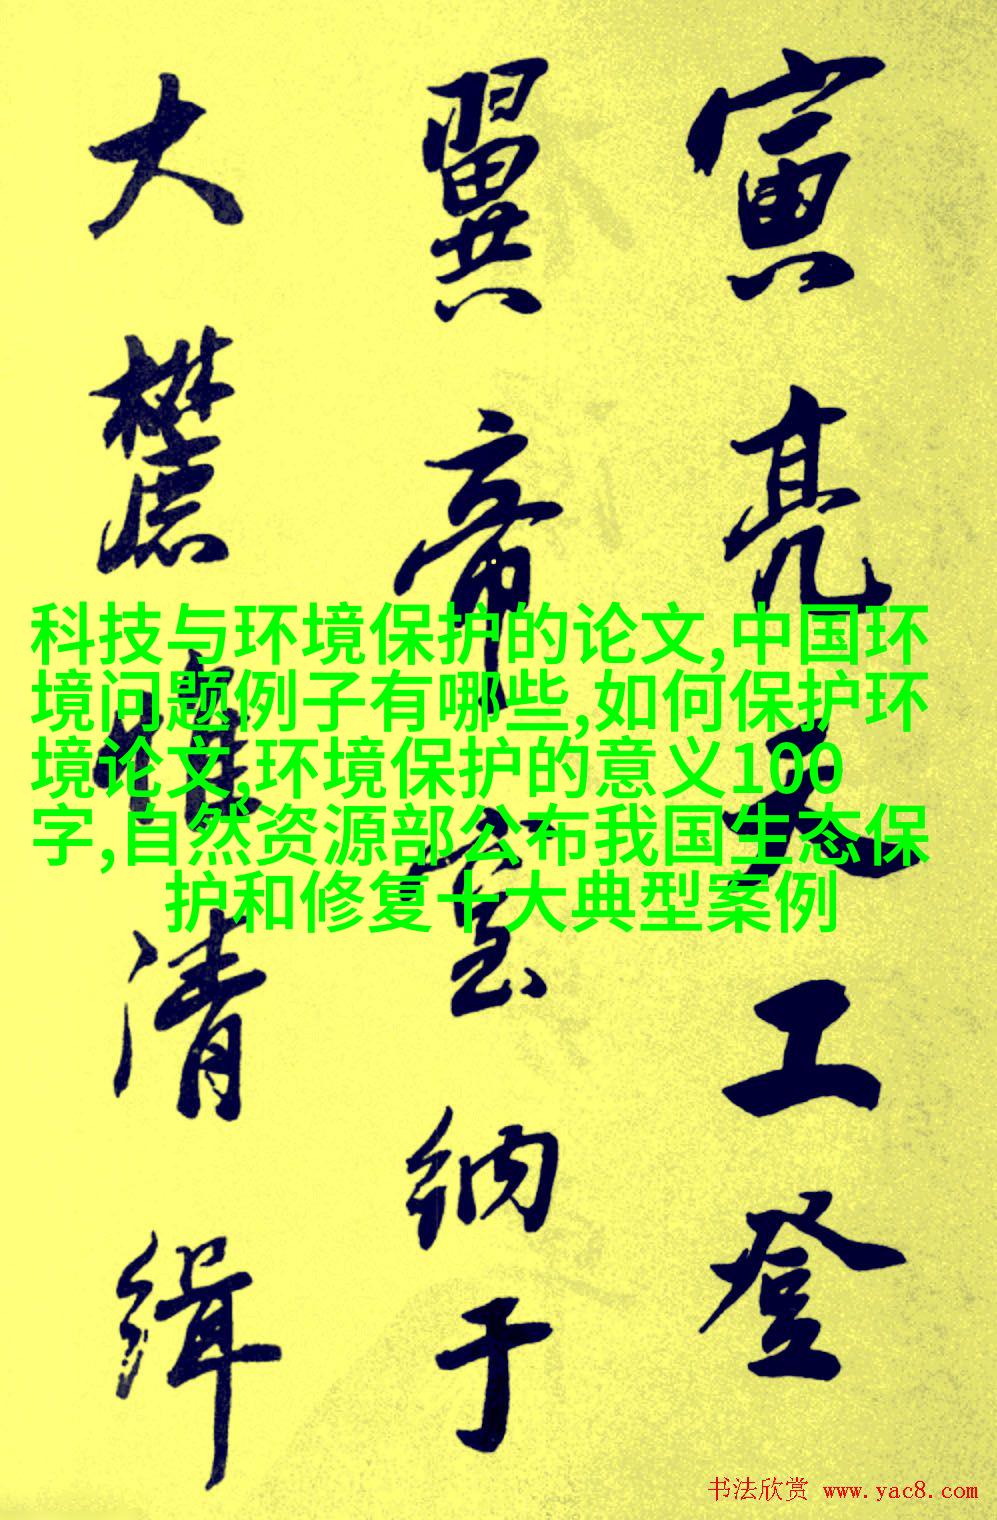 寅亮天工登
翼帝室納于
大麓惟清緝
科技与环境保护的论文,中国环
境问题例子有哪些,如何保护环
境论文,环境保护的意义100
字,自然资源部公布我国生态保
护和修复十大典型案例
书法欣赏 www.yac8.com